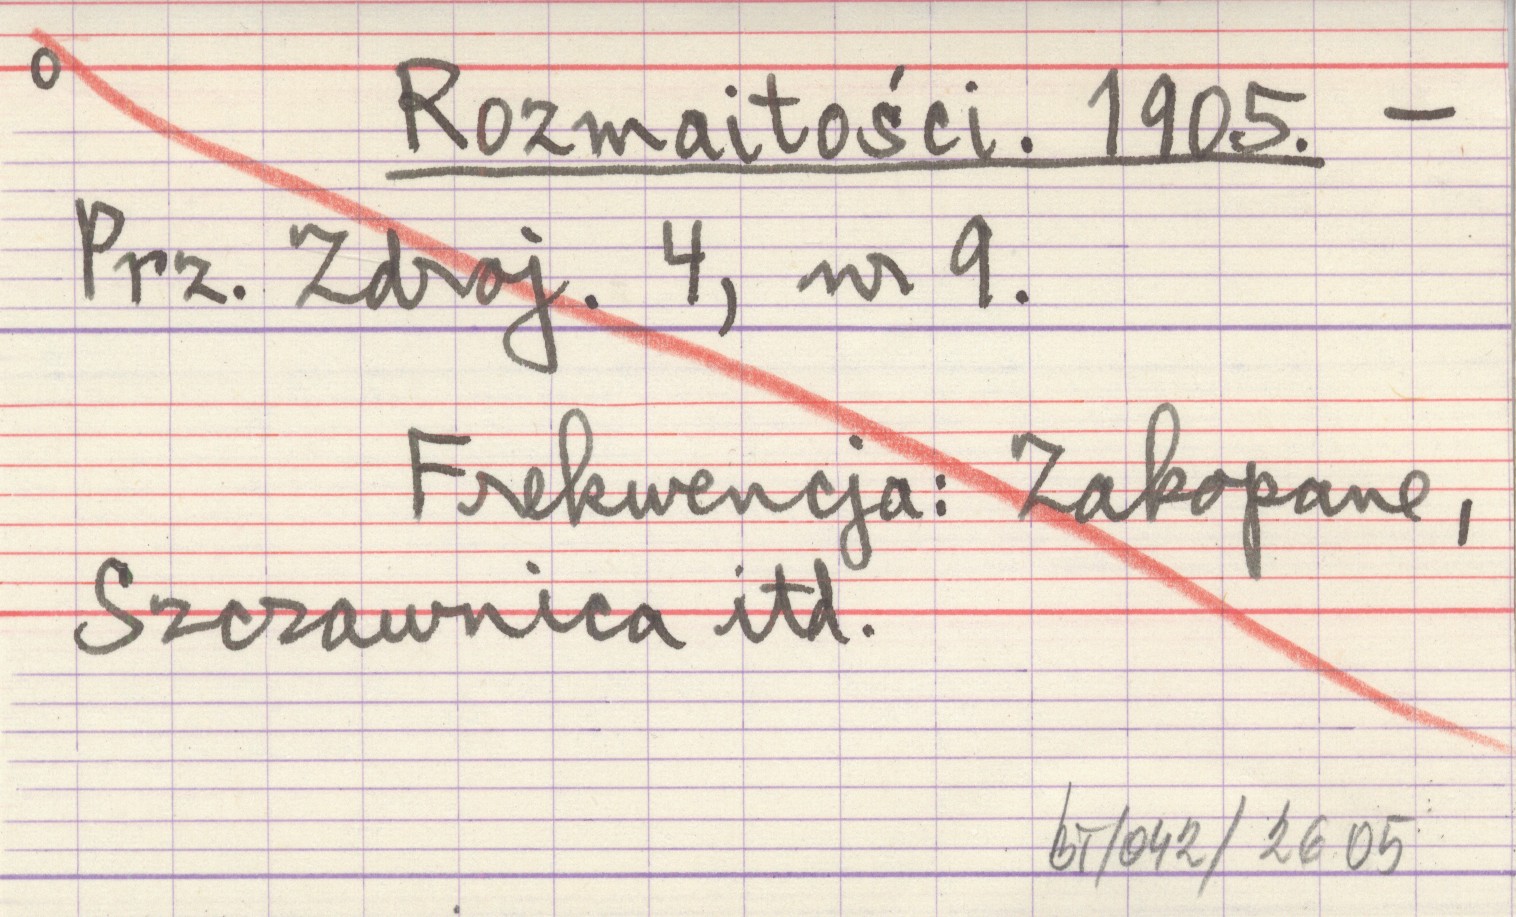 o
Rozmaitości. 1905. —
Prz. Zdroj. 4, nr 9.
Frekwencja: Zakopane,
Szczawnica itd.
bT/042/26.05